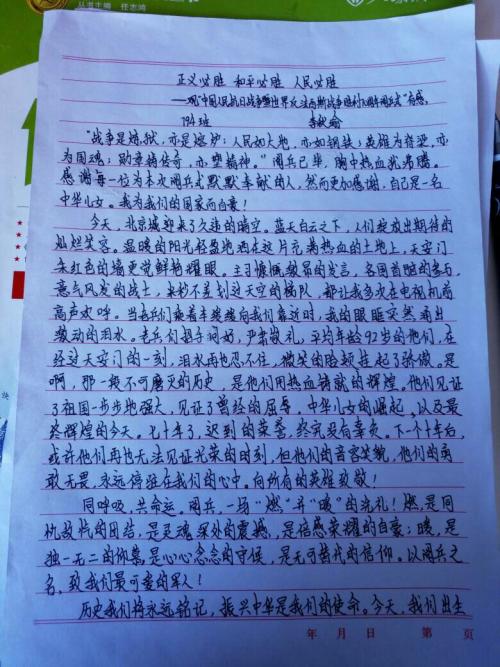 丛书主编 任志鸿
正义必胜 和平必胜 人民必胜
——观"中国人民抗日战争暨世界反法西斯战争胜利70周年阅兵式"有感
194班
"战争是熔狱,亦是熔炉;人民如大地,亦如钢铁;英雄为脊梁,亦
为国魂;勋章铸传奇,亦塑精神。"阅兵已毕,胸中热血犹沸腾。
感谢每一位为本次阅兵式默默奉献的人,然而更加感谢,自己是一名
中华儿女。我为我们的国家而自豪!
今天,北京城迎来了久违的晴空。蓝天白云之下,人们绽放出期待的
灿烂笑容。温暖的阳光轻盈地洒在这片充满热血的土地上,天安门
朱红色的墙更觉鲜艳耀眼。主习慷慨激昂的发言,各国首脑的参与
意气风发的战士,米秒不差划过天空的梯队,都让我多次在电视机前
高声欢呼。当老兵们乘着车缓缓向我们靠近时,我的眼眶突然涌出
激动的泪水。老兵们招手问好,严肃敬礼,平均年龄92岁的他们,在
经过天安门的一刻,泪水再也忍不住,微笑的脸颊挂起了骄傲。是
啊,那一段不可磨灭的历史,是他们用热血铸就的辉煌。他们见证
了祖国一步步地强大,见证了曾经的屈辱,中华儿女的崛起,以及最
终辉煌的今天。七十年了,迟到的荣誉,终究没有辜负。下一个十年后,
或许他们再也无法见证光荣的时刻,但他们的音容笑貌,他们的勇
敢无畏,永远停驻在我们的心中。向所有的英雄致敬!
同呼吸,共命运。阅兵,一场"燃"并"暖"的洗礼!燃,是同
仇敌忾的团结,是灵魂深处的震撼,是倍感荣耀的自豪;暖,是
独一无二的仰慕,是心心念念的守候,是无可替代的信仰。以阅兵之
名,致我们最可爱的军人!
历史我们将永远铭记,振兴中华是我们的使命。今天,我们出生
年 月 日 第 页